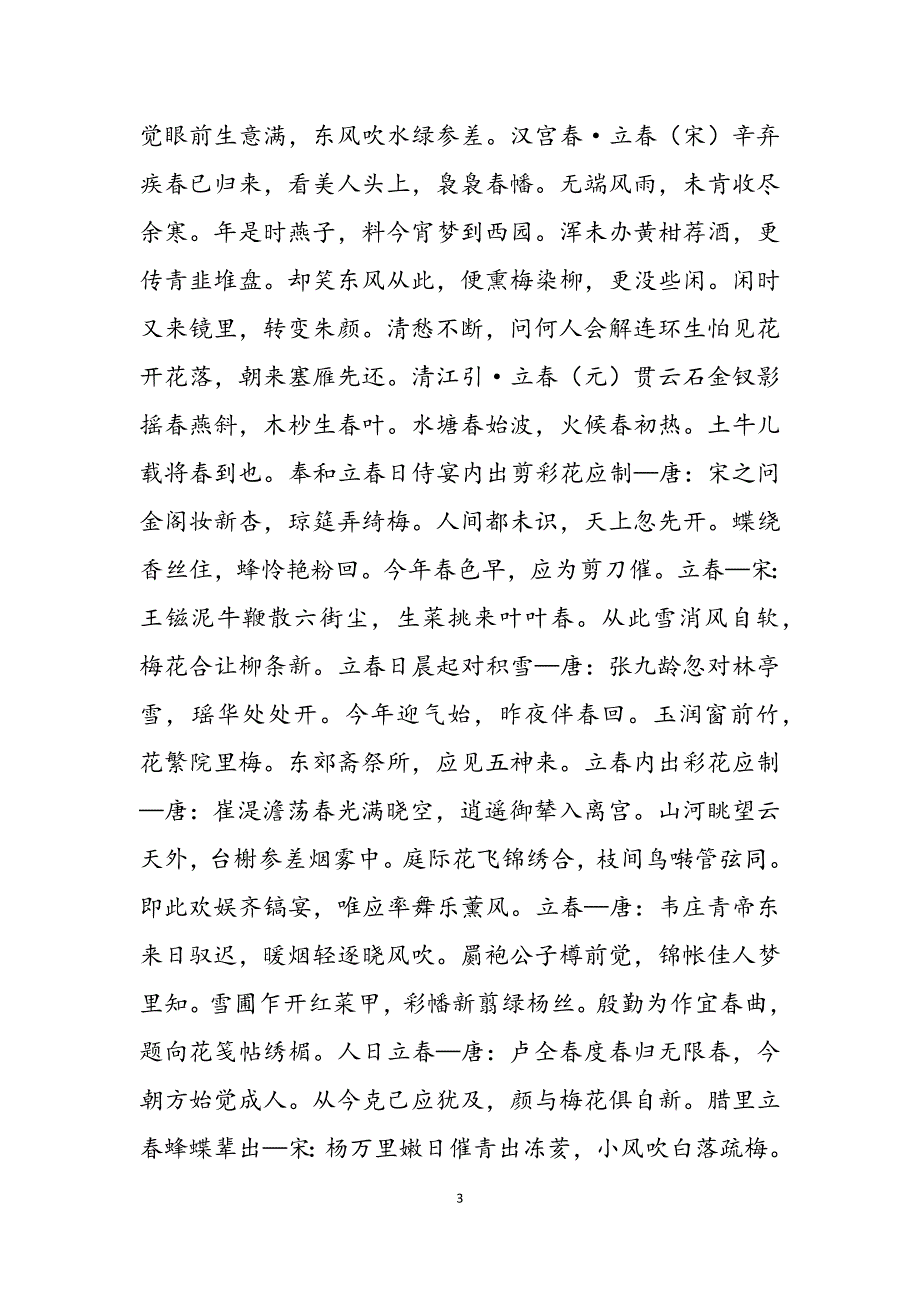 觉眼前生意满，东风吹水绿参差。汉宫春·立春（宋）辛弃
疾春已归来，看美人头上，袅袅春幡。无端风雨，未肯收尽
余寒。年是时燕子，料今宵梦到西园。浑未办黄柑荐酒，更
传青韭堆盘。却笑东风从此，便熏梅染柳，更没些闲。闲时
又来镜里，转变朱颜。清愁不断，问何人会解连环生怕见花
开花落，朝来塞雁先还。清江引·立春（元）贯云石金钗影
摇春燕斜，木杪生春叶。水塘春始波，火候春初热。土牛儿
载将春到也。奉和立春日侍宴内出剪彩花应制—唐：宋之问
金阁妆新杏，琼筵弄绮梅。人间都未识，天上忽先开。蝶绕
香丝住，蜂怜艳粉回。今年春色早，应为剪刀催。立春—宋：
王镃泥牛鞭散六街尘，生菜挑来叶叶春。从此雪消风自软，
梅花合让柳条新。立春日晨起对积雪—唐：张九龄忽对林亭
雪，瑶华处处开。今年迎气始，昨夜伴春回。玉润窗前竹，
花繁院里梅。东郊斋祭所，应见五神来。立春内出彩花应制
—唐：崔湜澹荡春光满晓空，逍遥御辇入离宫。山河眺望云
天外，台榭参差烟雾中。庭际花飞锦绣合，枝间鸟啭管弦同。
即此欢娱齐镐宴，唯应率舞乐薰风。立春—唐：韦庄青帝东
来日驭迟，暖烟轻逐晓风吹。罽袍公子樽前觉，锦帐佳人梦
里知。雪圃乍开红菜甲，彩幡新翦绿杨丝。殷勤为作宜春曲，
题向花笺帖绣楣。人日立春—唐：卢仝春度春归无限春，今
朝方始觉成人。从今克己应犹及，颜与梅花俱自新。腊里立
春蜂蝶辈出—宋：杨万里嫩日催青出冻荄，小风吹白落疏梅。
3